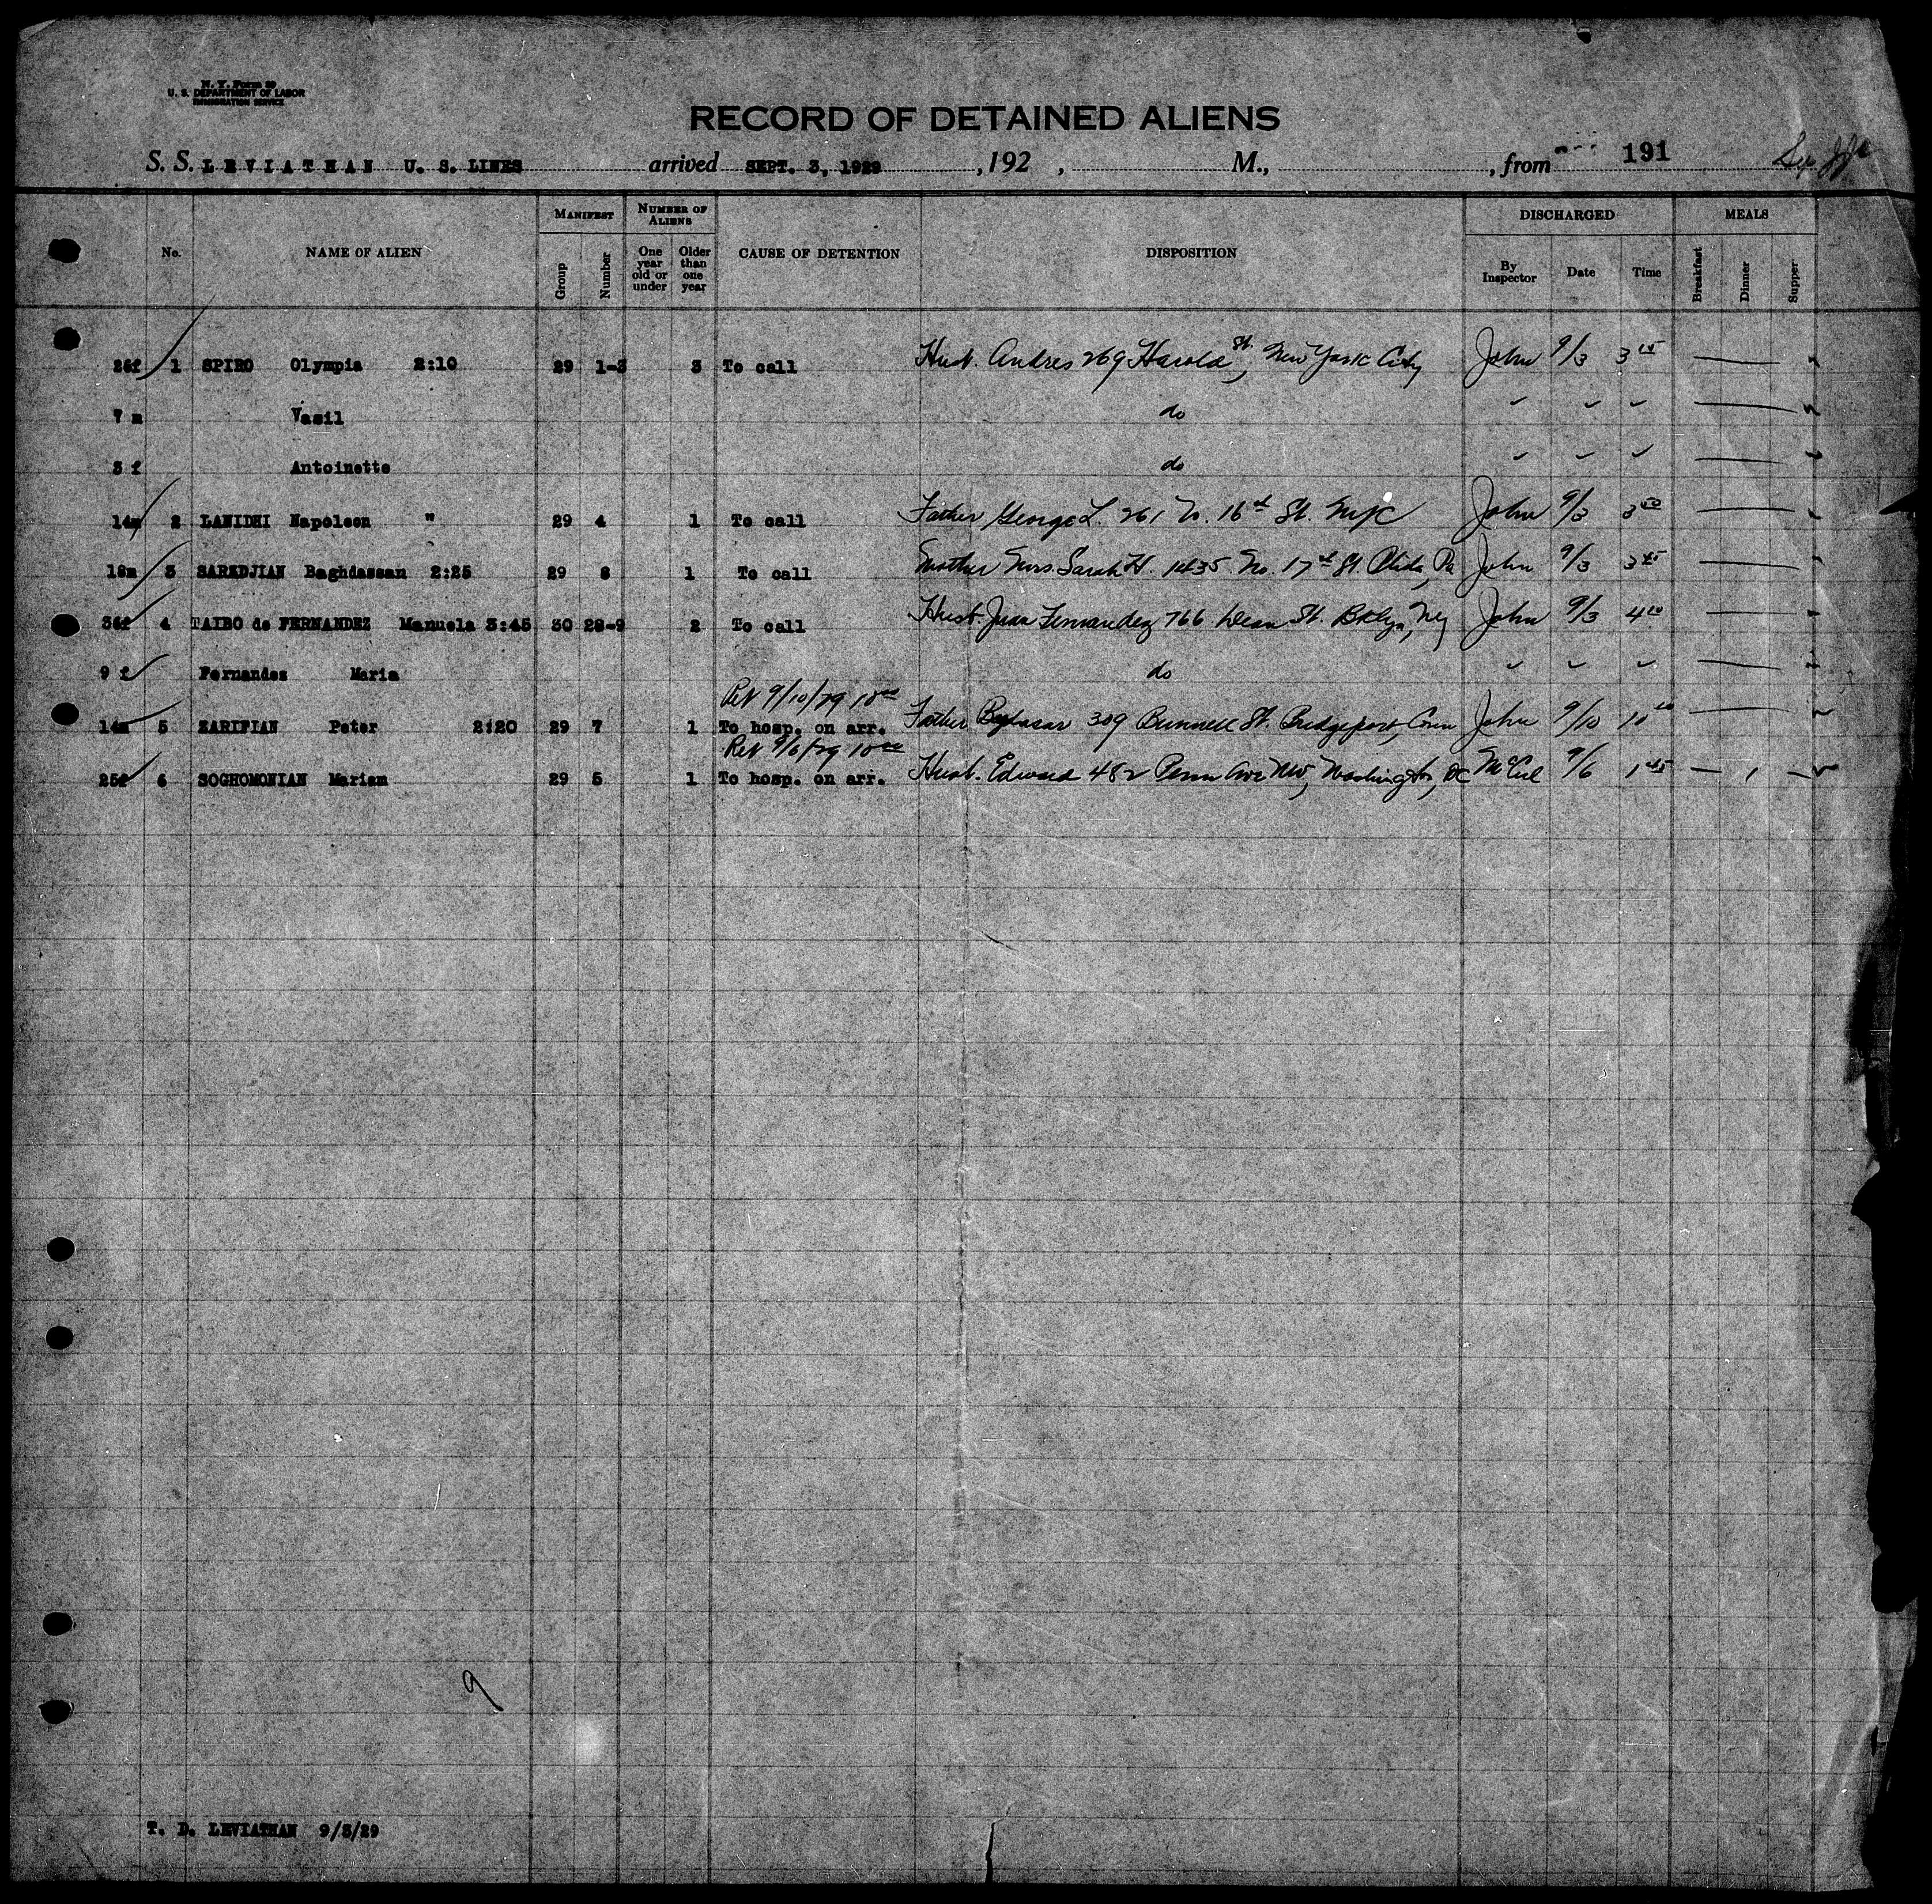 N. Y. Form 29
U. S. DEPARTMENT OF LABOR
IMMIGRATION SERVICE
RECORD OF DETAINED ALIENS
S. S. LEVIATHAN U. S. LINES arrived SEPT. 3, 1929, 192 , M., , from 191
MANIFEST NUMBER OF ALIENS DISCHARGED MEALS
No. NAME OF ALIEN Group Number One year old or under Older than one year CAUSE OF DETENTION DISPOSITION By Inspector Date Time Breakfast Dinner Supper
26f 1 SPIRO Olympia 2:10 29 1-3 3 To call Husb. Andres 269 Harold St, New York City John 9/3 3 15
7 m Vasil do
3 f Antoinette do
14m 2 LANIDHI Napoleon " 29 4 1 To call Father George L. 261 16th St. NYC John 9/3 3 50
18m 3 SAREDJIAN Baghdassan 2:25 29 8 1 To call Mother Mrs. Sarah H. 1435 No. 17th St. Phila, Pa John 9/3 3 45
36f 4 TAIBO de FERNANDEZ Manuela 3:45 30 28-9 2 To call Husb. Juan Fernandez 766 Dean St. Bklyn, NY John 9/3 4 10
9 f Fernandes Maria do
Ret 9/10/29 10 00
14m 5 ZARIFIAN Peter 2:20 29 7 1 To hosp. on arr. Father 309 Bunnell St. Bridgeport, Conn John 9/10 10
Ret 9/6/29 10 00
25f 6 SOGHOMONIAN Mariam 29 5 1 To hosp. on arr. Husb. Edward 482 Penn Ave NW, Washington, DC 9/6 1 45 — 1 —
9
T. D. LEVIATHAN 9/3/29